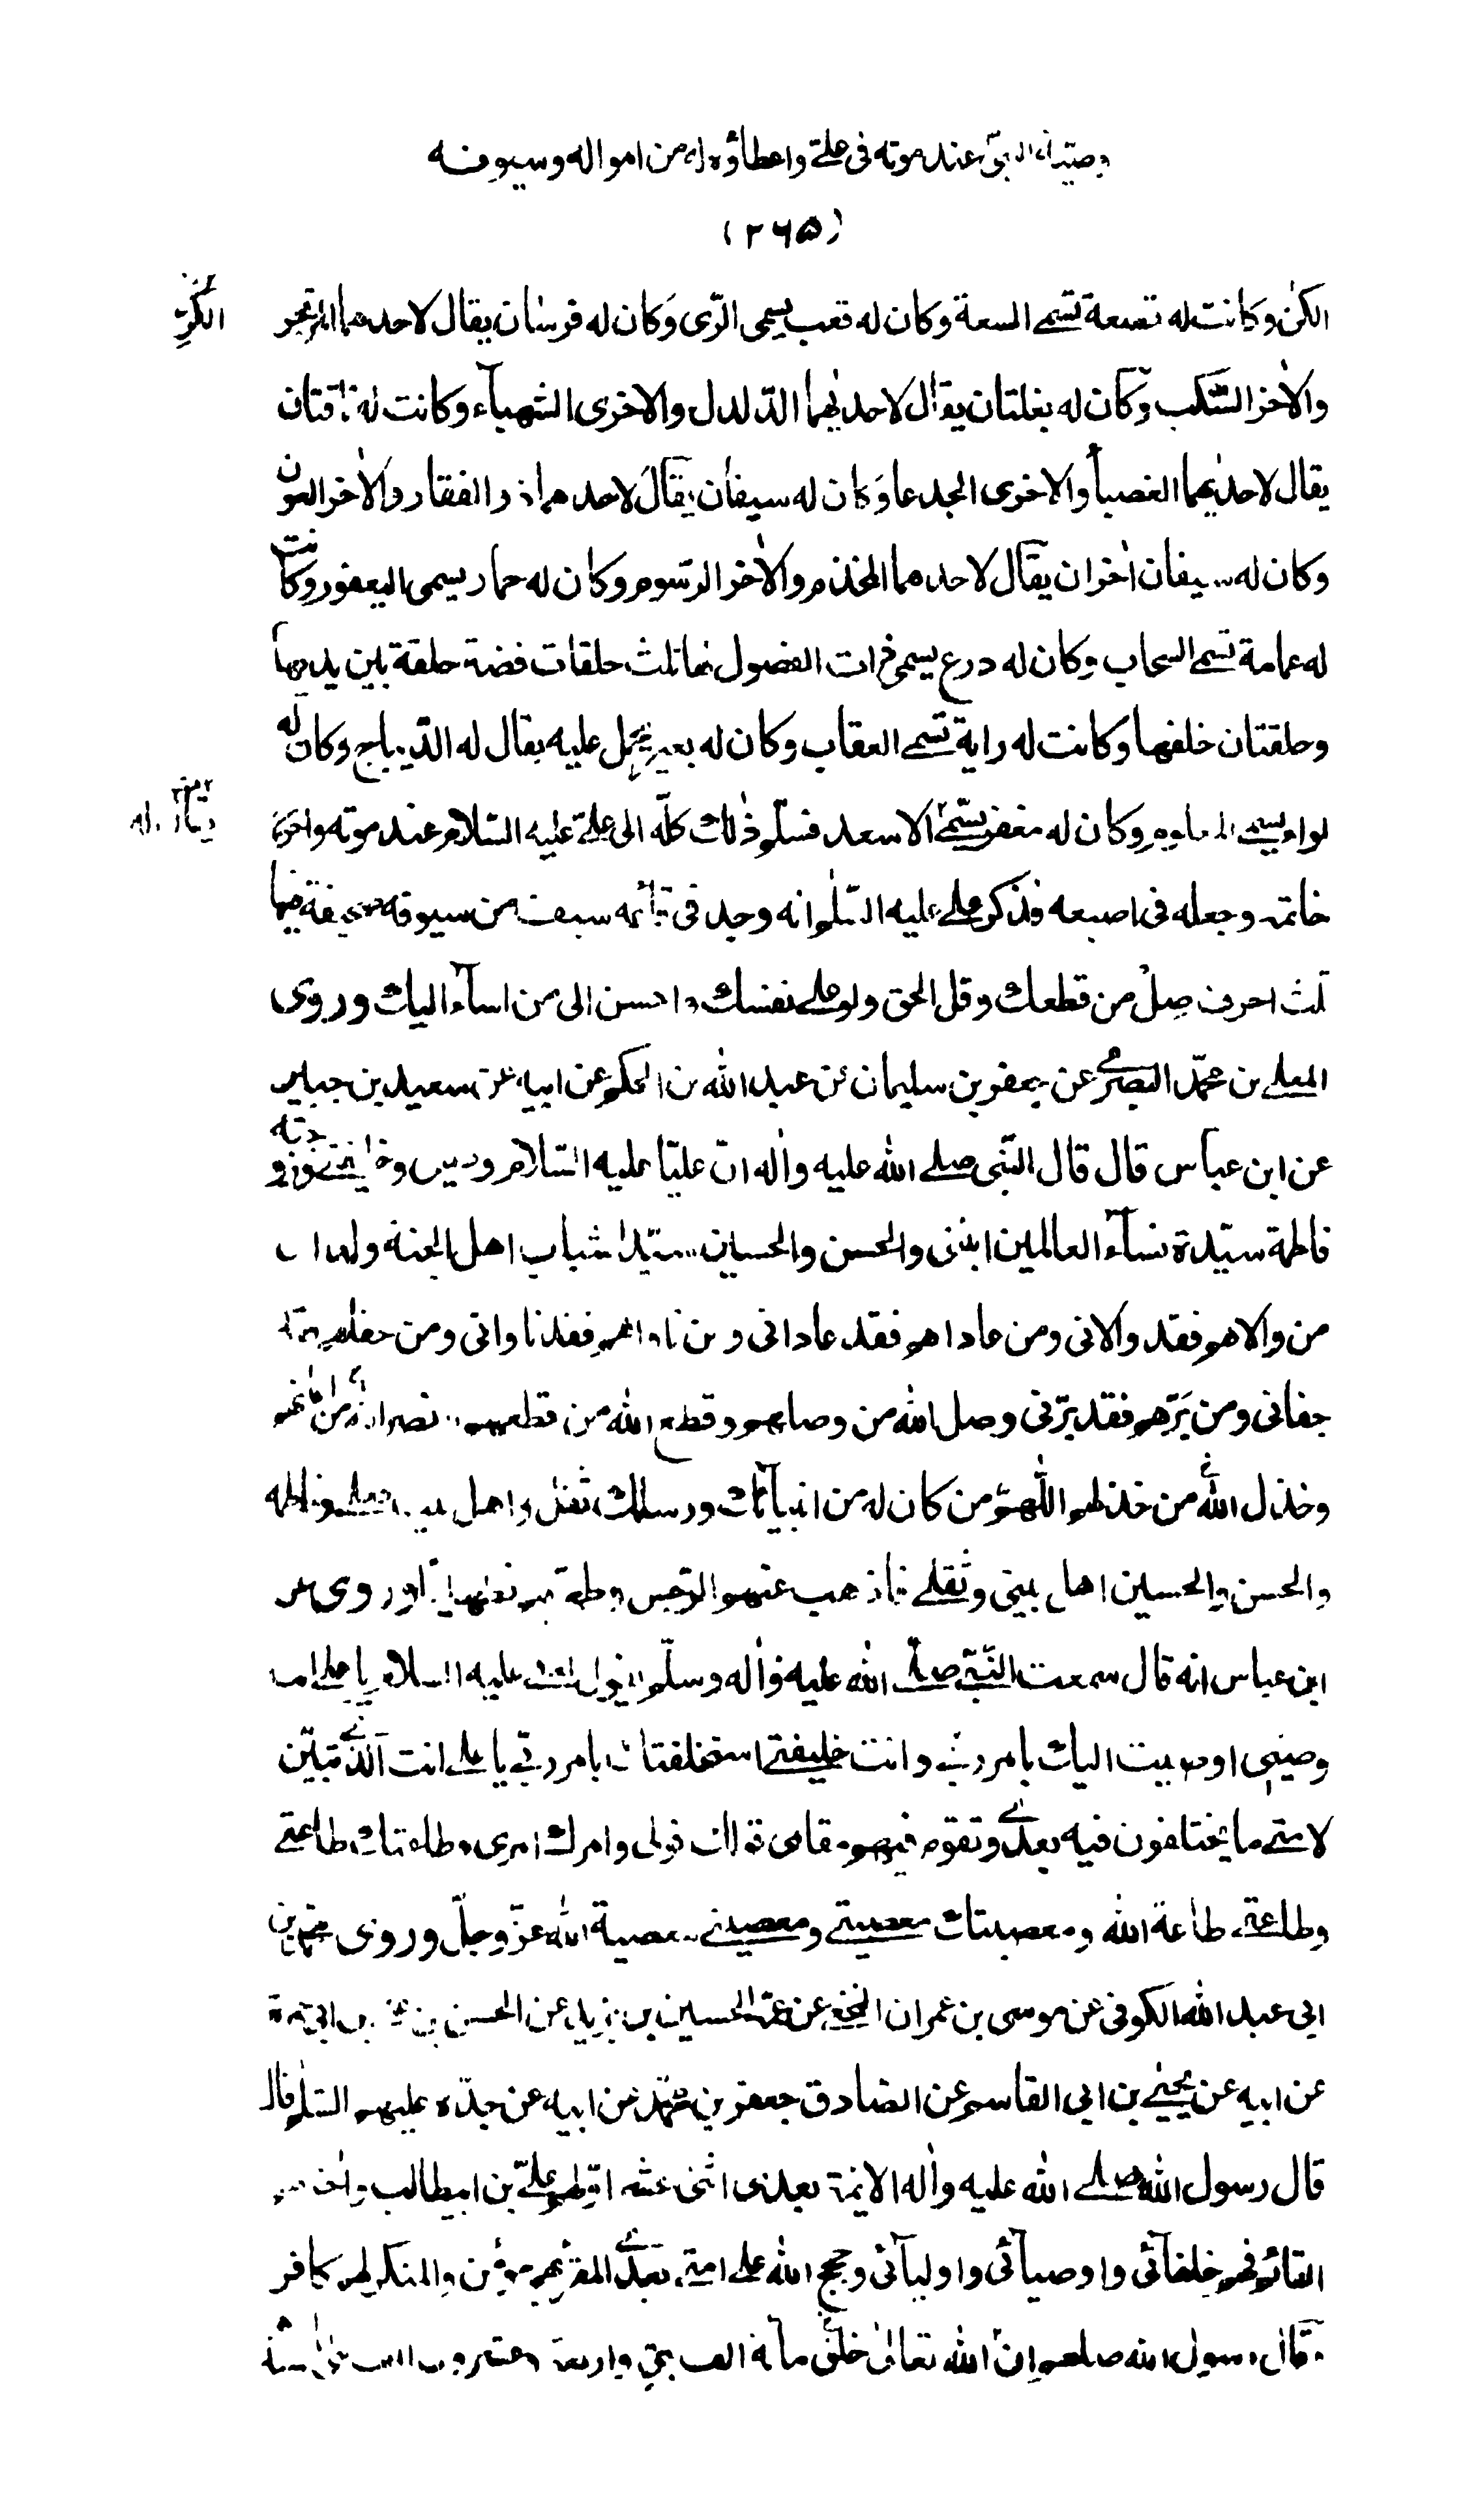 وصية النبي عند موته في علي واعطاؤه له من امواله وسيوفه
(٢۶۵)
الكن وكانت له قصعة تسمى السعة وكان له قعب يسمى الرّى وكان له فرسان يقال لاحدهما المرتجز
والاخر السّكب وكان له بغلتان يقال لاحديهما الدّلدل والاخرى الشهباء وكانت له ناقتان
يقال لاحديهما العضبا والاخرى الجدعا وكان له سيفان يقال لاحدهما ذو الفقار والاخر العون
وكان له سيفان اخران يقال لاحدهما المخذم والاخر الرّسوم وكان له حمار يسمى اليعفور وكانت
له عمامة تسمى السحاب وكان له درع يسمى ذات الفضول لها ثلث حلقات فضة حلقة بين يديها
وحلقتان خلفها وكانت له راية تسمى العقاب وكان له بعير يحمل عليه يقال له الدّيباج وكان له
لواء يسمى وكان له مغفر يسمى الاسعد فسلّم ذلك كلّه الى علي عليه السّلام عند موته واخرج
خاتمه وجعله في اصبعه فذكر علي عليه السّلم انه وجد في قائمة سيف من سيوفه صحيفة فيها
ثلث احرف صِل من قطعك وقل الحق ولو على نفسك واحسن الى من اساء اليك وروى
المعلى بن محمّد البصري عن جعفر بن سليمان عن عبد الله بن الحكم عن ابيه عن سعيد بن جبير
عن ابن عباس قال قال النّبي صلى الله عليه واله انّ عليّا عليه السّلام وصيي وخليفتي وزوجته
فاطمة سيّدة نساء العالمين ابنتي والحسن والحسين سيّدا شباب اهل الجنة ولداى
من والاهم فقد والاني ومن عاداهم فقد عاداني ومن ناواهم فقد ناواني ومن جفاهم فقد
جفاني ومن برّهم فقد برّني وصل الله من وصلهم وقطع الله من قطعهم ونصر الله من اعانهم
وخذل الله من خذلهم اللّهمّ من كان له من انبيائك ورسلك ثقل واهل بيت فعلي وفاطمة
والحسن والحسين اهل بيتي وثقلي فاذهب عنهم الرّجس وطهّرهم تطهيرا وروى عن
ابن عباس انه قال سمعت النّبي صلى الله عليه واله وسلّم يقول لعلي عليه السلام يا علي انت
وصيي اوصيت اليك بامر ربي وانت خليفتي استخلفتك بامر ربّي يا علي انت الّذي تبيّن
لامتي ما يختلفون فيه بعدي وتقوم فيهم مقامي قولك قولي وامرك امري وطاعتك طاعتي
وطاعتي طاعة الله ومعصيتك معصيتي ومعصيتي معصية الله عزّ وجلّ وروى محمّد بن
ابي عبد الله الكوفي عن موسى بن عمران النخعي عن عمّه الحسين بن يزيد عن الحسن بن علي بن ابي حمزة
عن ابيه عن يحيى بن ابي القاسم عن الصّادق جعفر بن محمّد عن ابيه عن جدّه عليهم السّلم قال
قال رسول الله صلى الله عليه واله الائمة بعدي اثنى عشر اوّلهم علي بن ابيطالب واخرهم
القائم فهم خلفائي واوصيائي واوليائي وحجج الله على امتي بعدي المقرّ بهم مؤمن والمنكر لهم كافر
وقال رسول الله صلعم انّ الله تعالى خلق مائة الف نبي واربعة وعشرون الف نبي